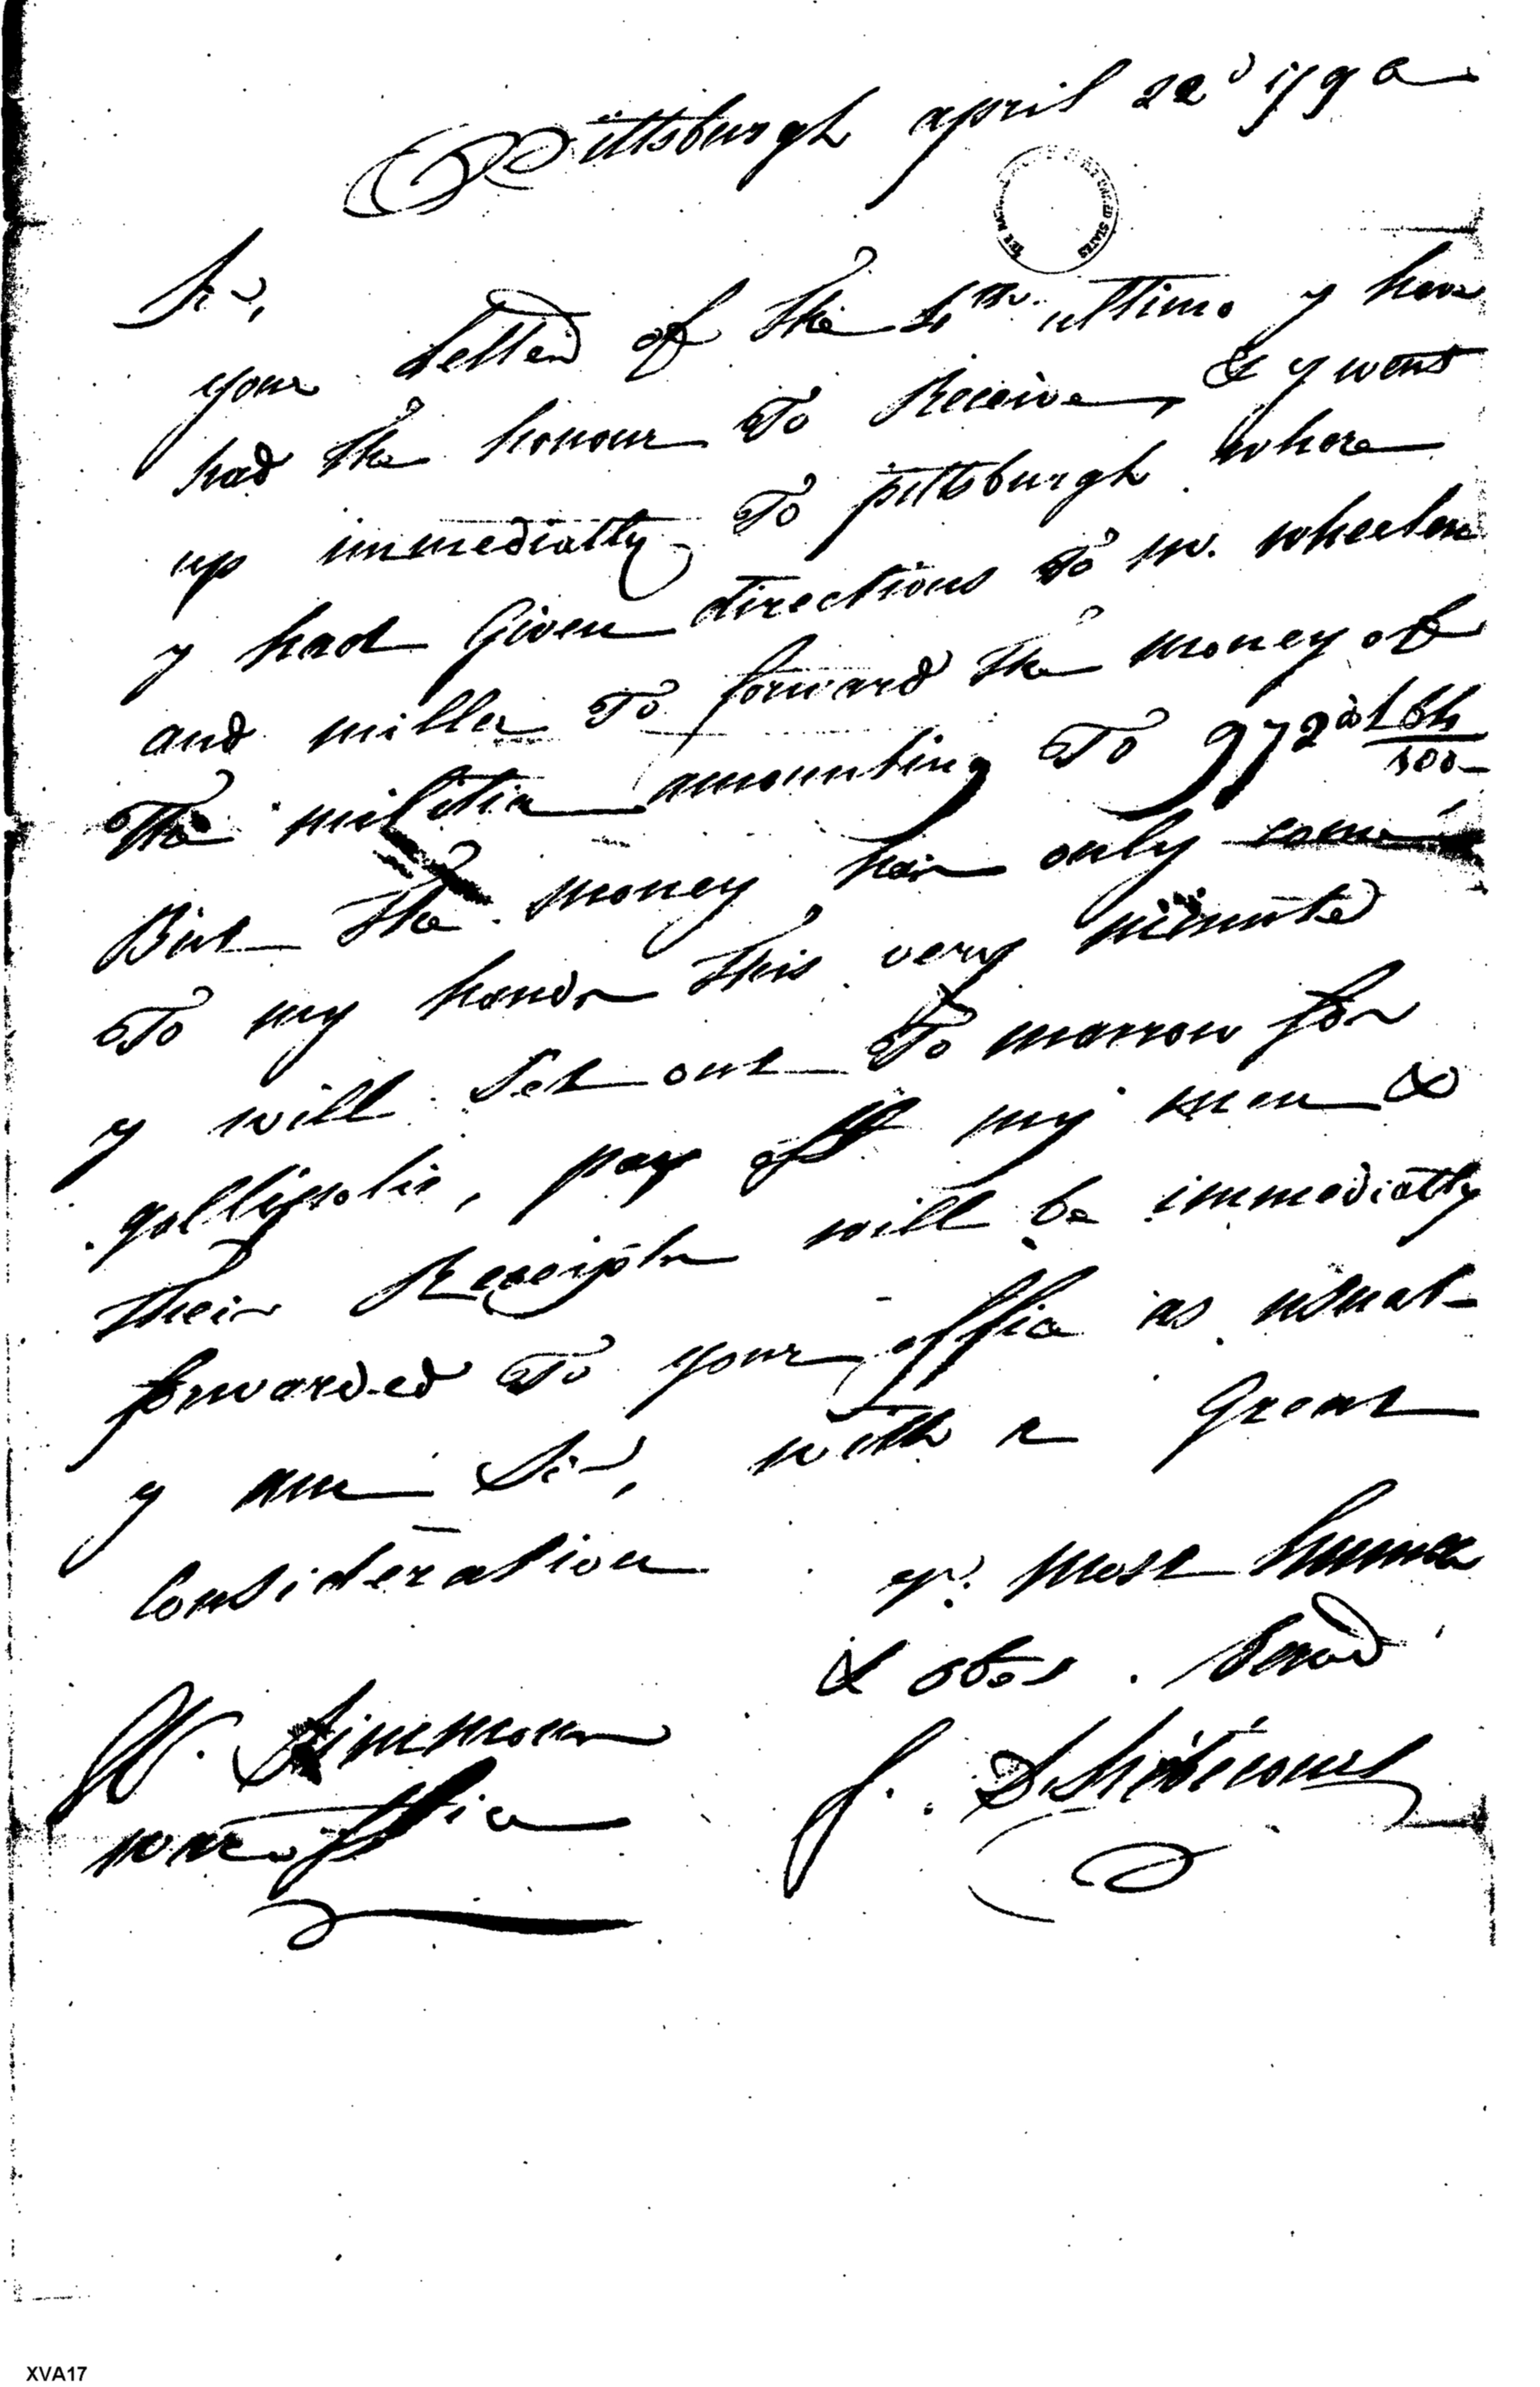 Pittsburgh april 22d 179
Sir,
your letter of the ultimo y have
had the honour To Receive, & y went
up immediatly To pittsburgh where
y had Given directions To m. wheelen
and miller To forward the money of
The militia amounting To 972
But the money, has only come
To my hands this very minute
y will Set out To morrow for
gallipolis, pay off my men &
their Receipts will be immediatly
forwarded To your office as usual
y am Sir, with a Great
Consideration
yr. most humble
& obed. servd
W. Simmons
war office
J. D'hébécourt
THE UNITED STATES
XVA17